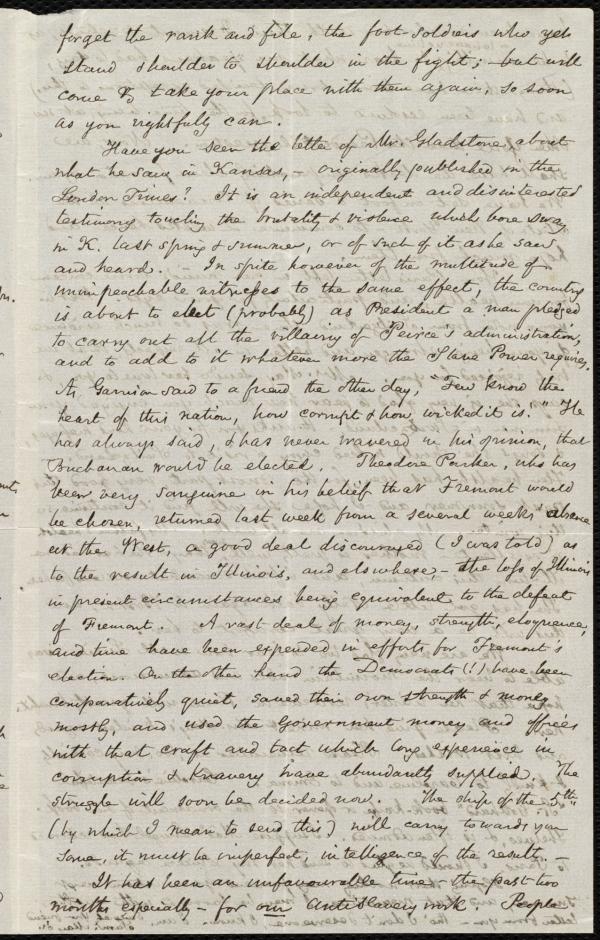 forget the rank and file, the foot-soldiers who yet
stand shoulder to shoulder in the fight; - but will
come & take your place with them again, so soon
as you rightfully can.
Have you seen the letter of Mr. Gladstone, about
what he saw in Kansas, - originally published in the
London Times? It is an independent and disinterested
testimony touching the brutality & violence which bore sway
in K. last spring & summer, or of such of it as he saw
and heard. - In spite however of the multitude of
unimpeachable witnesses to the same effect, the country
is about to elect (probably) as President a man pledged
to carry out all the villainy of Peirce's administration,
and to add to it whatever more the Slave Power requires.
As Garrison said to a friend the other day, "Few know the
heart of this nation, how corrupt & how wicked it is." He
has always said, & has never wavered in his opinion, that
Buchanan would be elected. Theodore Parker, who has
been very sanguine in his belief that Fremont would
be chosen, returned last week from a several weeks' absence
at the West, a good deal discouraged (I was told) as
to the result in Illinois, and elsewhere, - the loss of Illinois
in present circumstances being equivalent to the defeat
of Fremont. A vast deal of money, strength, eloquence,
and time have been expended in efforts for Fremont's
election. On the other hand the Democrats (!) have been
comparatively quiet, saved their own strength & money
mostly, and used the Government money and offices
with that craft and tact which long experience in
corruption & knavery have abundantly supplied. The
struggle will soon be decided now. The ship of the 5th
(by which I mean to send this) will carry towards you
some, it must be imperfect, intelligence of the result. -
It has been an unfavourable time - the past two
months especially - for our Antislavery work. People